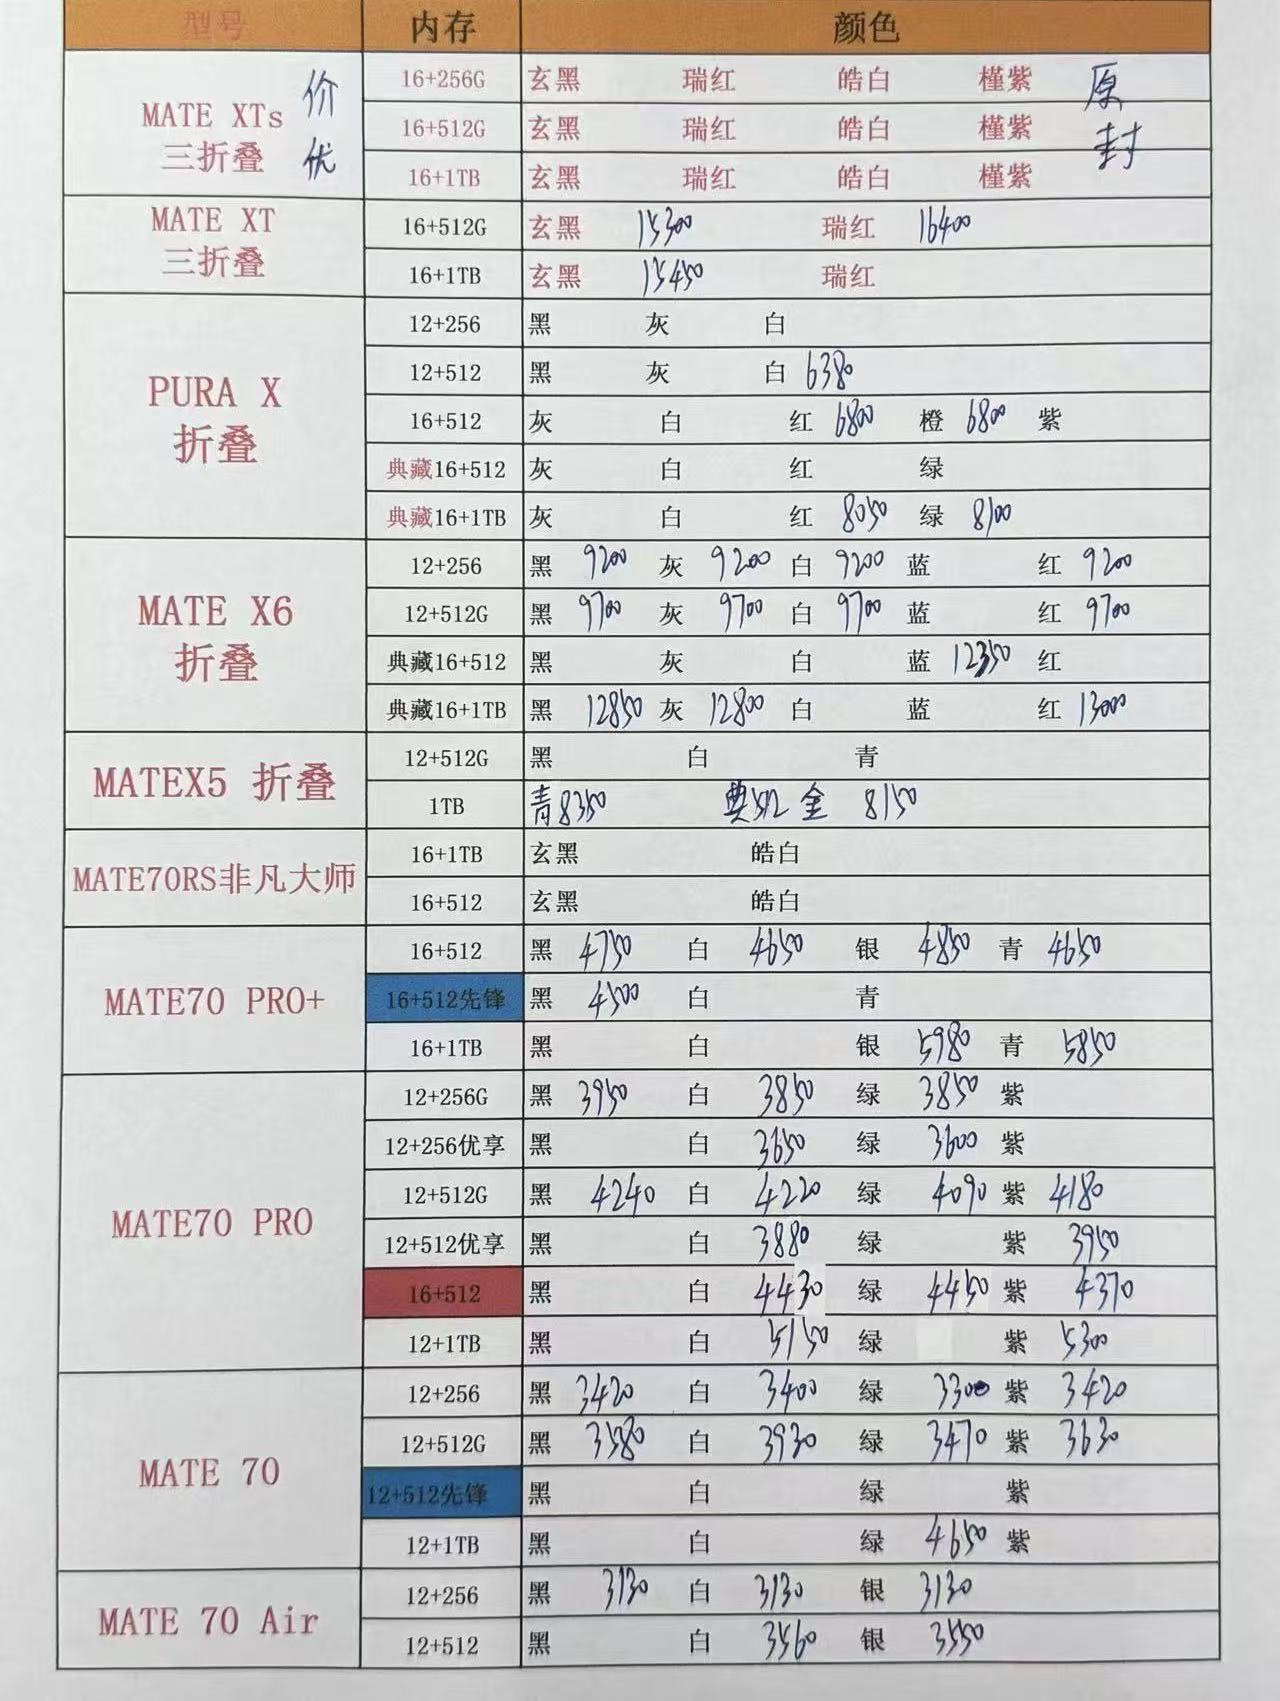 型号 内存 颜色
MATE XTs 三折叠 价优 16+256G 玄黑 瑞红 皓白 槿紫 原封
16+512G 玄黑 瑞红 皓白 槿紫
16+1TB 玄黑 瑞红 皓白 槿紫
MATE XT 三折叠 16+512G 玄黑 15300 瑞红 16400
16+1TB 玄黑 15450 瑞红
PURA X 折叠 12+256 黑 灰 白
12+512 黑 灰 白 6380
16+512 灰 白 红 6800 橙 6800 紫
典藏16+512 灰 白 红 绿
典藏16+1TB 灰 白 红 8050 绿 8100
MATE X6 折叠 12+256 黑 9200 灰 9200 白 9200 蓝 红 9200
12+512G 黑 9700 灰 9700 白 9700 蓝 红 9700
典藏16+512 黑 灰 白 蓝 12350 红
典藏16+1TB 黑 12850 灰 12800 白 蓝 红 13000
MATEX5 折叠 12+512G 黑 白 青
1TB 青8350 典512 金 8150
MATE70RS非凡大师 16+1TB 玄黑 皓白
16+512 玄黑 皓白
MATE70 PRO+ 16+512 黑 4750 白 4650 银 4850 青 4650
16+512先锋 黑 4500 白 青
16+1TB 黑 白 银 5980 青 5850
MATE70 PRO 12+256G 黑 3950 白 3850 绿 3850 紫
12+256优享 黑 白 3650 绿 3600 紫
12+512G 黑 4240 白 4220 绿 4090 紫 4180
12+512优享 黑 白 3880 绿 紫 3950
16+512 黑 白 4430 绿 4450 紫 4370
12+1TB 黑 白 5150 绿 紫 5300
MATE 70 12+256 黑 3420 白 3400 绿 3300 紫 3420
12+512G 黑 3580 白 3930 绿 3470 紫 3630
12+512先锋 黑 白 绿 紫
12+1TB 黑 白 绿 4650 紫
MATE 70 Air 12+256 黑 3130 白 3130 银 3130
12+512 黑 白 3560 银 3550